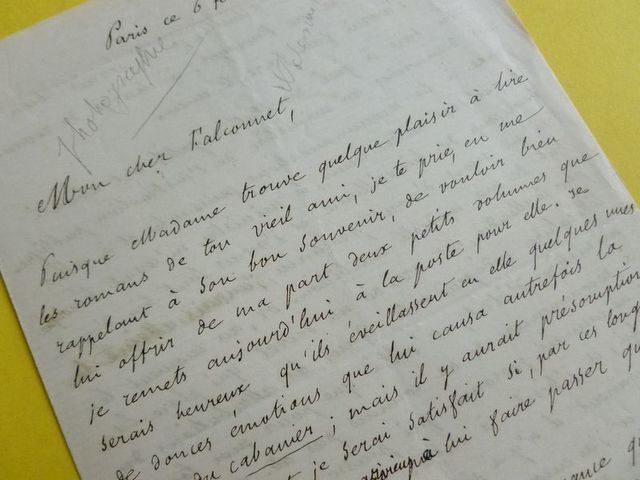 Paris ce 6
Photographie
Mon cher Falconnet,
Puisque Madame trouve quelque plaisir à lire
les romans de ton vieil ami, je te prie, en me
rappelant à son bon souvenir, de vouloir bien
lui offrir de ma part deux petits volumes que
je remets aujourd'hui à la poste pour elle. Je
serais heureux qu'ils éveillassent en elle quelques unes
de douces émotions que lui causa autrefois la
du cabanier ; mais il y aurait présomption
je serai satisfait si, par ces
à lui faire passer